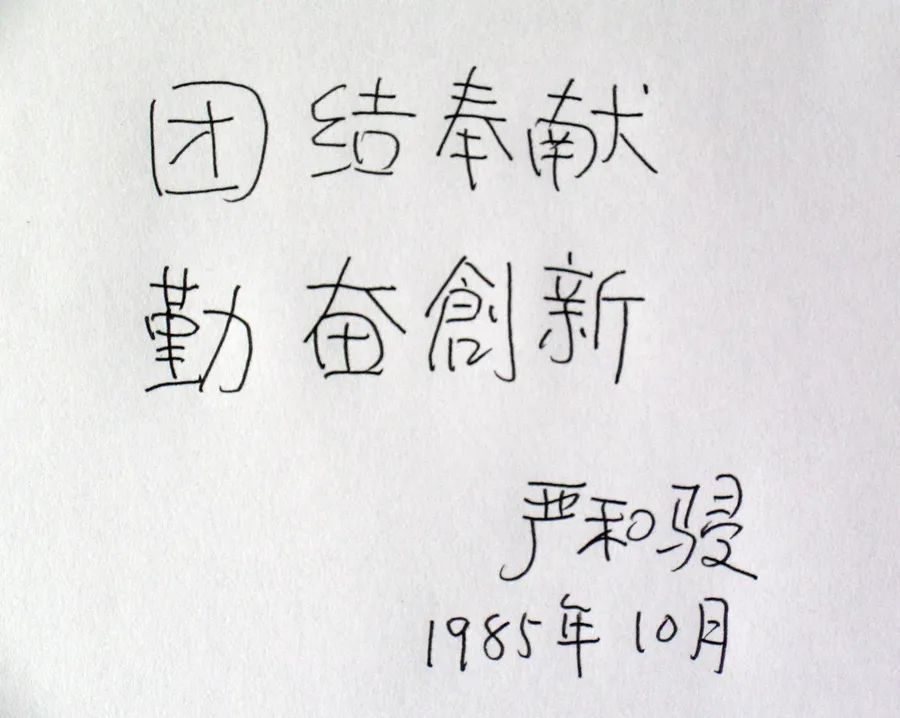 团结奉献
勤奋創新
严和骎
1985年10月